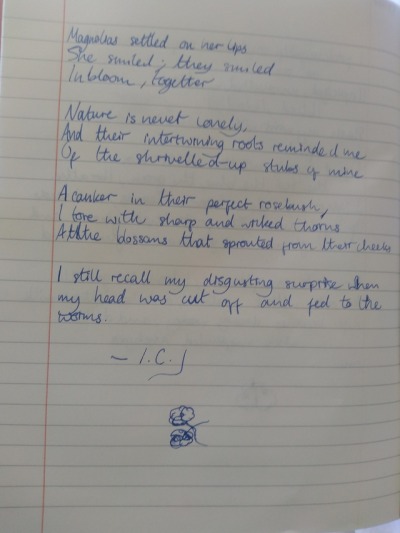 Magnolias settled on her lips
She smiled; they smiled
In bloom, together
Nature is never lonely,
And their intertwining roots reminded me
Of the shrivelled-up stubs of mine
A canker in their perfect rosebush,
I tore with sharp and wicked thorns
At the blossoms that sprouted from their cheeks
I still recall my disgusting surprise when
my head was cut off and fed to the
worms.
— I.C.J